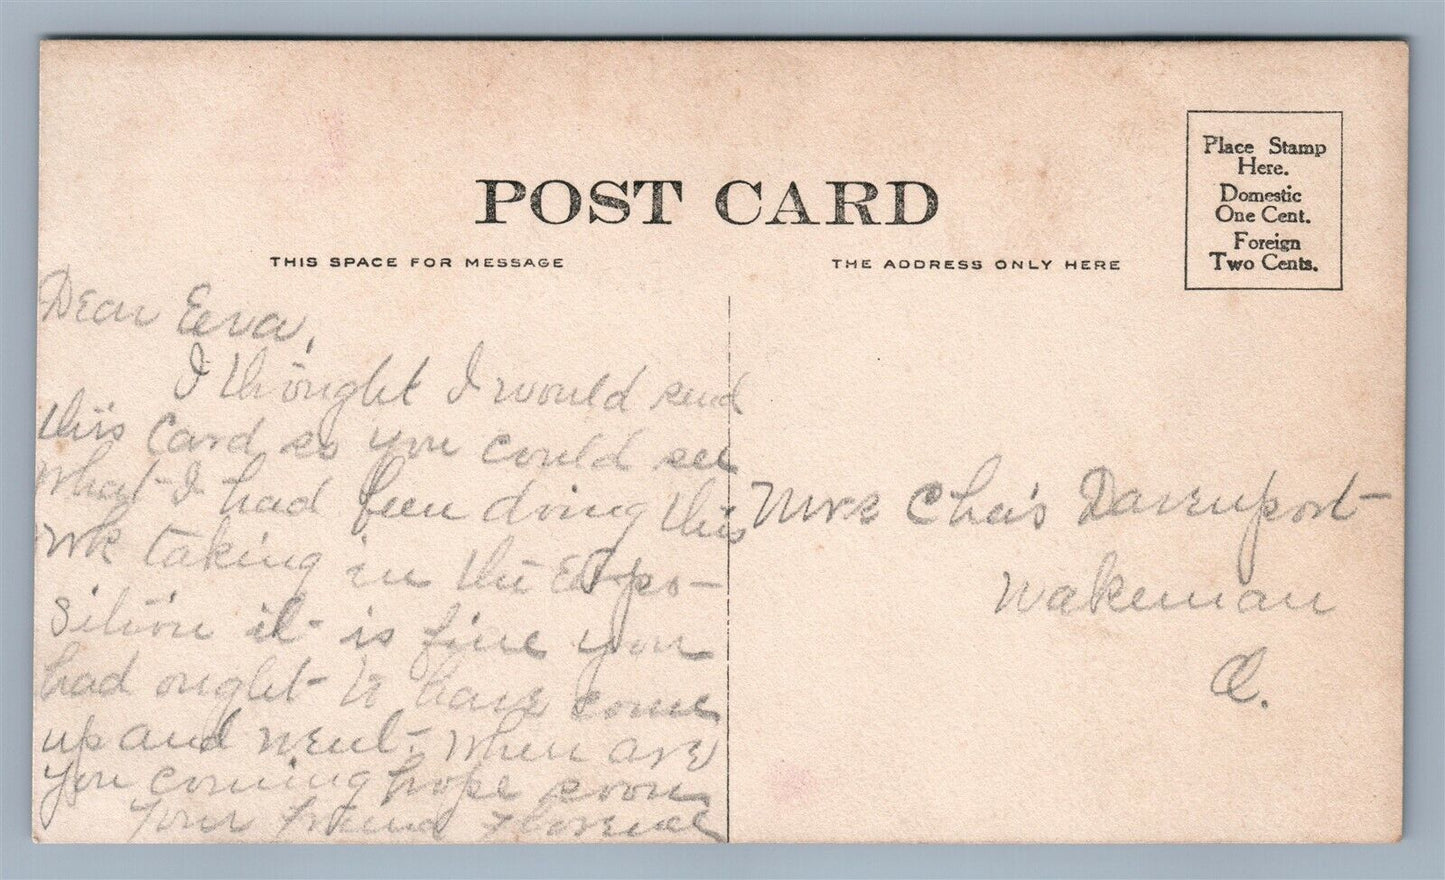 POST CARD
THIS SPACE FOR MESSAGE
THE ADDRESS ONLY HERE
Place Stamp
Here.
Domestic
One Cent.
Foreign
Two Cents.
Dear Eeva,
I thought I would send
this Card so you could see
what I had been doing this
wk taking in the Expo-
sition it is fine you
had ought to have come
up and went. when are
you coming hope soon
Your Friend Florence
Mrs Chas Davenport
Wakeman
O.